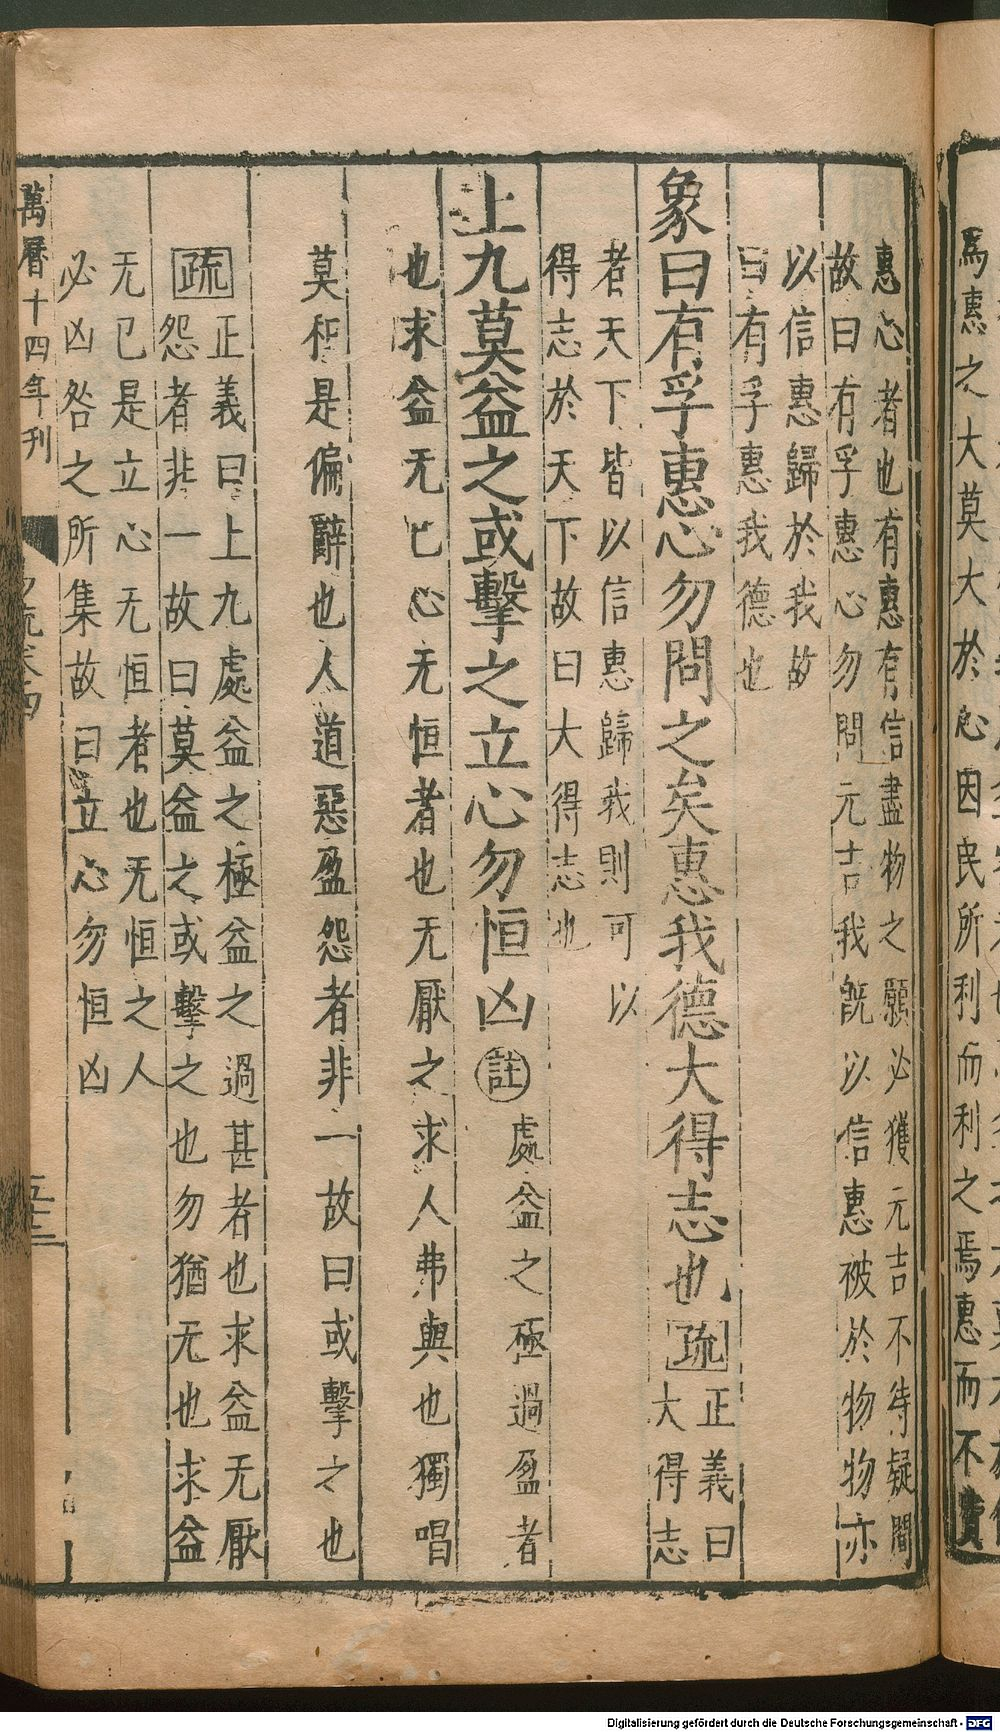 爲惠之大莫大於心因民所利而利之焉惠而不費
惠心者也有惠有信盡物之願必獲元吉不待疑問
故曰有孚惠心勿問元吉我旣以信惠被於物物亦
以信惠歸於我故
曰有孚惠我德也
象曰有孚惠心勿問之矣惠我德大得志也疏
正義曰
大得志
者天下皆以信惠歸我則可以
得志於天下故曰大得志也
上九莫益之或擊之立心勿恒凶註處益之極過盈者
也求益无已心无恒者也无厭之求人弗與也獨唱
莫和是偏辭也人道惡盈怨者非一故曰或擊之也
疏
正義曰上九處益之極益之過甚者也求益无厭
怨者非一故曰莫益之或擊之也勿猶无也求益
无已是立心无恒者也无恒之人
必凶咎之所集故曰立心勿恒凶
萬曆十四年刊
Digitalisierung gefördert durch die Deutsche Forschungsgemeinschaft - DFG